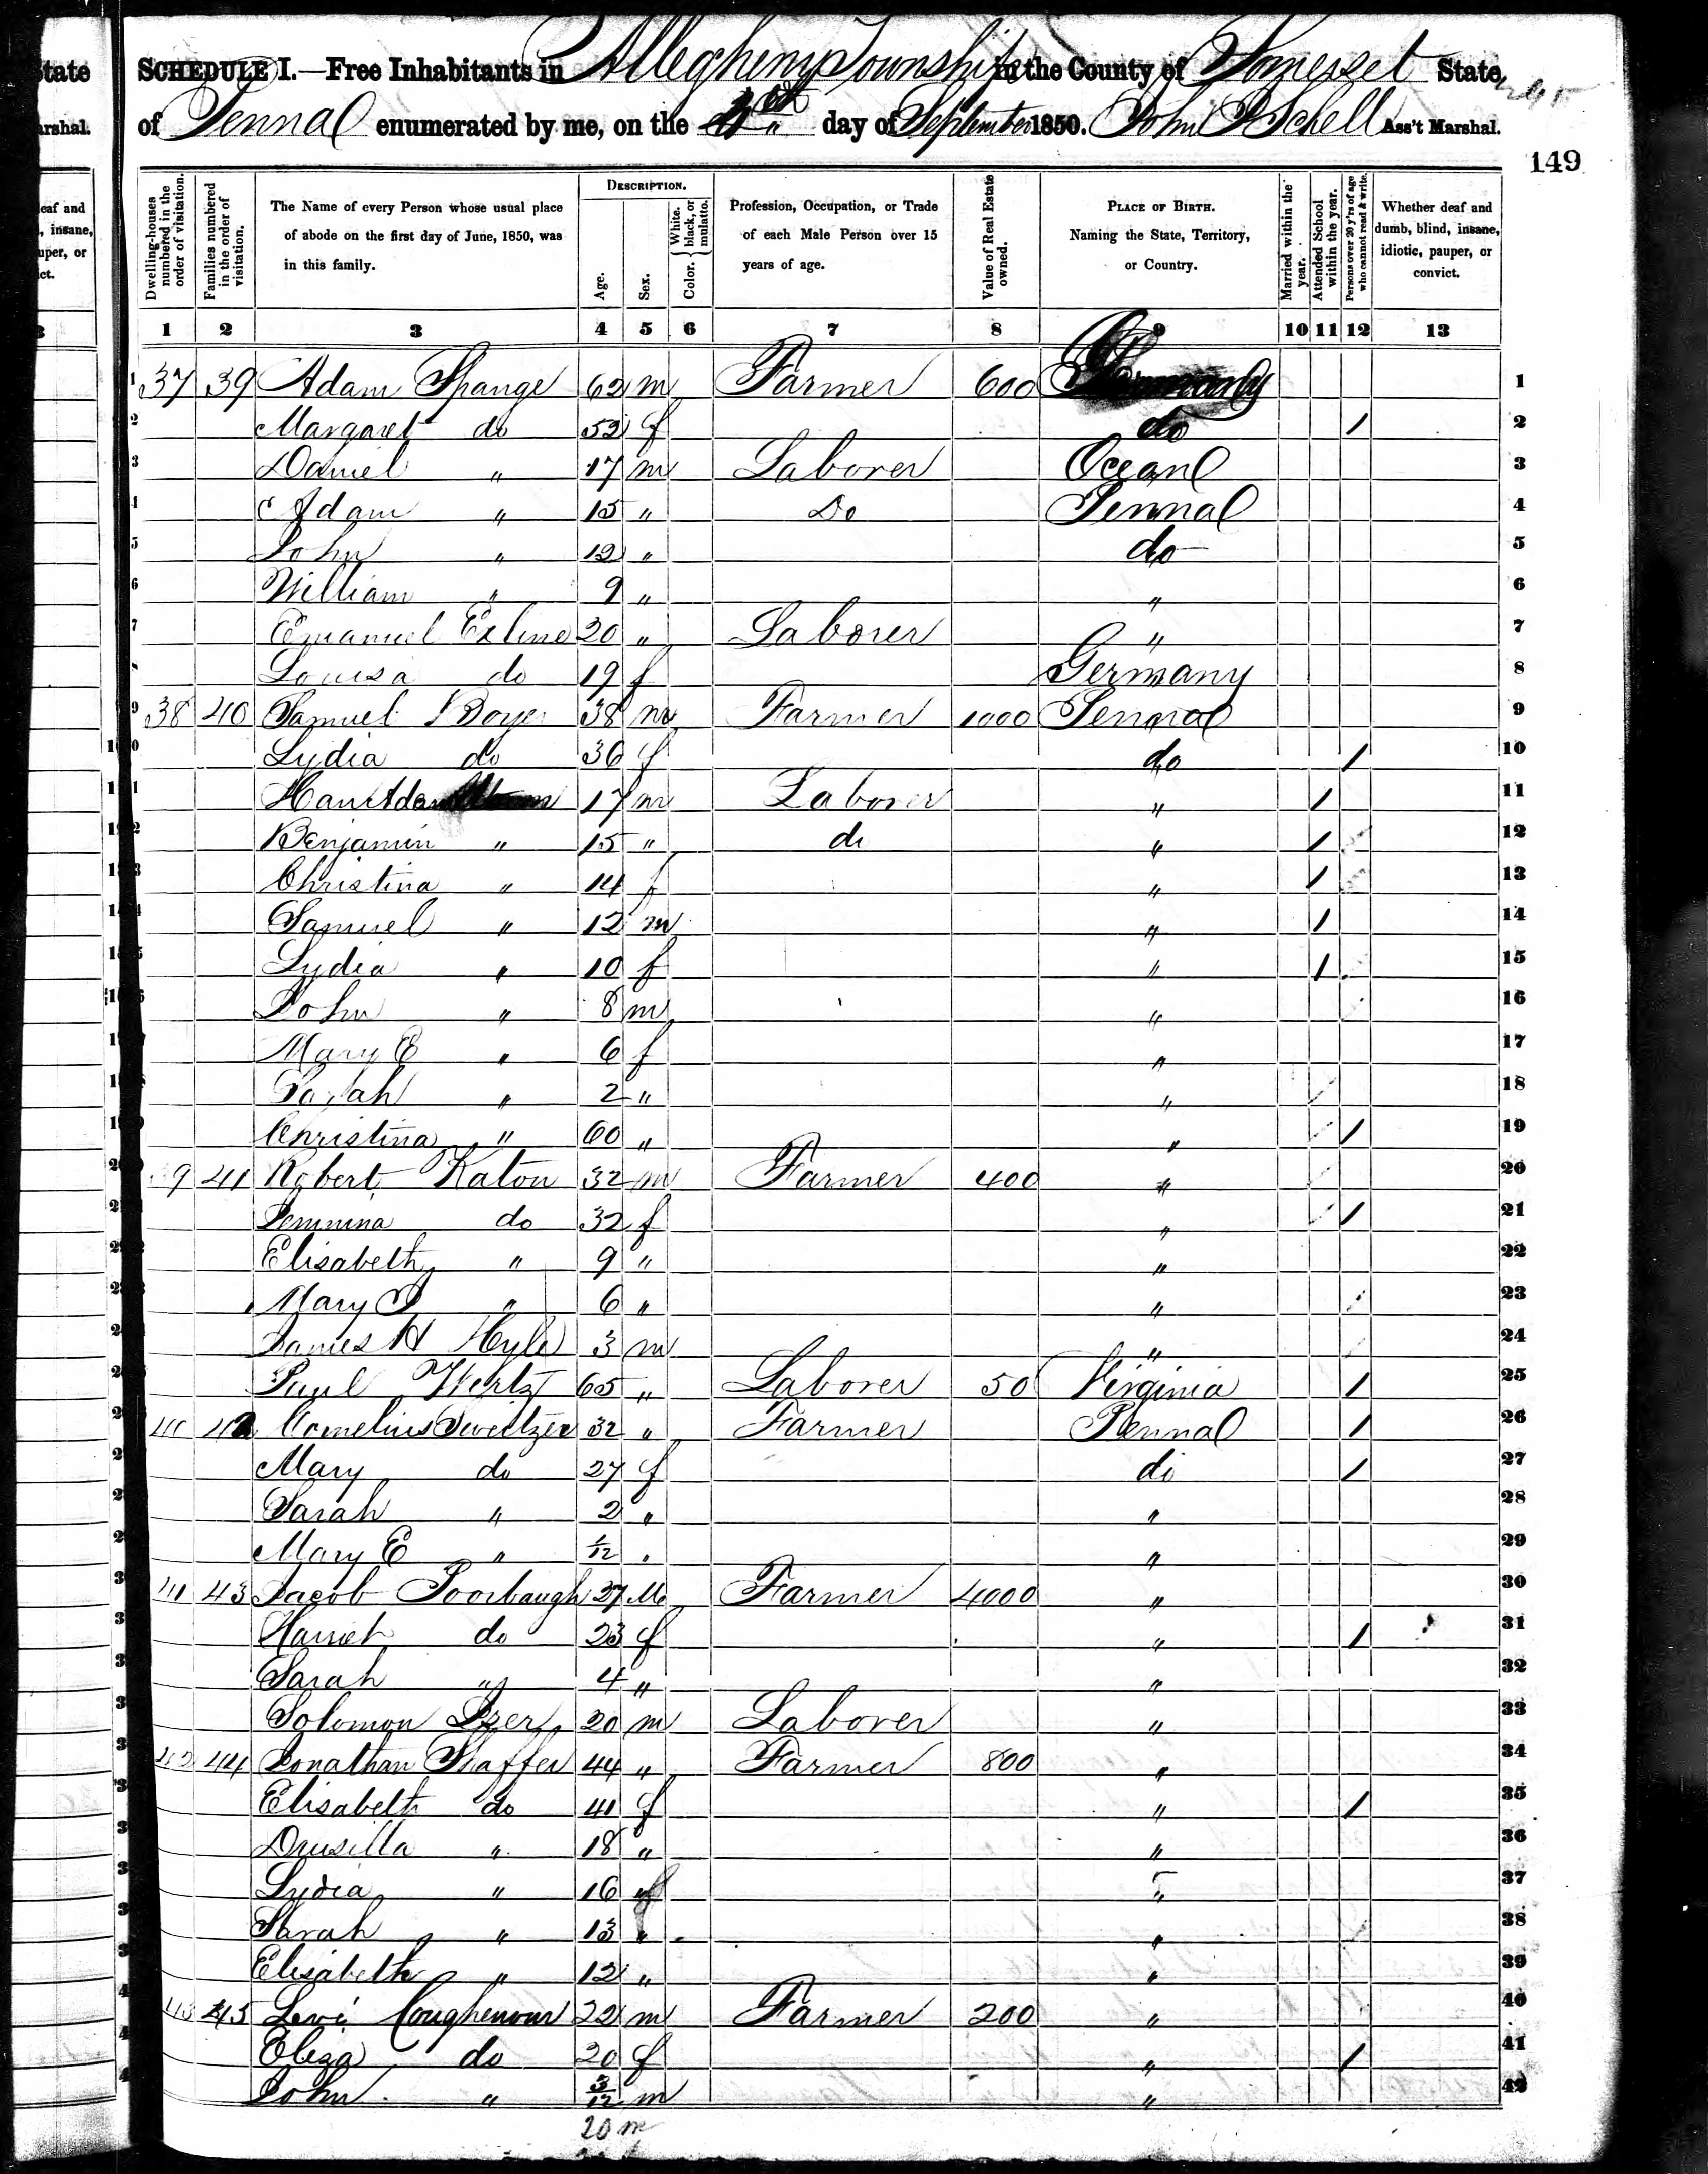 SCHEDULE I.—Free Inhabitants in Allegheny Township in the County of Somerset State
of Pennal enumerated by me, on the day of September 1850. John P Schell Ass't Marshal.
149
Dwelling-houses numbered in the order of visitation.
Families numbered in the order of visitation.
The Name of every Person whose usual place of abode on the first day of June, 1850, was in this family.
DESCRIPTION.
Age.
Sex.
Color. { White, black, or mulatto.
Profession, Occupation, or Trade of each Male Person over 15 years of age.
Value of Real Estate owned.
PLACE OF BIRTH. Naming the State, Territory, or Country.
Married within the year.
Attended School within the year.
Persons over 20 y'rs of age who cannot read & write.
Whether deaf and dumb, blind, insane, idiotic, pauper, or convict.
1 2 3 4 5 6 7 8 9 10 11 12 13
1 37 39 Adam Spange 62 m Farmer 600 Germany 1
2 Margaret do 52 f do / 2
3 Daniel " 17 m Laborer Ocean 3
Adam " 15 " Do Pennal 4
5 John " 12 " do 5
6 William " 9 " " 6
7 Emanuel Exline 20 " Laborer " 7
Louisa do 19 f Germany 8
9 38 40 Samuel Boyer 38 m Farmer 1000 Pennal 9
Lydia do 36 f do / 10
17 m Laborer " / 11
Benjamin " 15 " do " / 12
Christina " 14 f " / 13
Samuel " 12 m " / 14
Lydia " 10 f " / 15
John " 8 m " 16
Mary E " 6 f " 17
Sarah " 2 " " 18
Christina " 60 " " / 19
39 41 Robert Katon 32 m Farmer 400 " 20
do 32 f " / 21
Elisabeth " 9 " " 22
Mary " 6 " " 23
James H Hyle 3 m " 24
Paul Wertz 65 " Laborer 50 Virginia / 25
40 42 Cornelius Sweitzer 32 " Farmer Pennal / 26
Mary do 27 f do / 27
Sarah " 2 " " 28
Mary E " 1/12 " " 29
41 43 Jacob Poorbaugh 27 M Farmer 4000 " 30
Harriet do 23 f " / 31
Sarah " 4 " " 32
Solomon 20 m Laborer " 33
42 44 Jonathan Shaffer 44 " Farmer 800 " 34
Elisabeth do 41 f " / 35
Drusilla " 18 " " 36
Lydia " 16 f " 37
Sarah " 13 " " 38
Elisabeth " 12 " " 39
43 45 Levi Coughenour 22 m Farmer 200 " 40
Eliza do 20 f " / 41
John " 3/12 m " 42
20 m